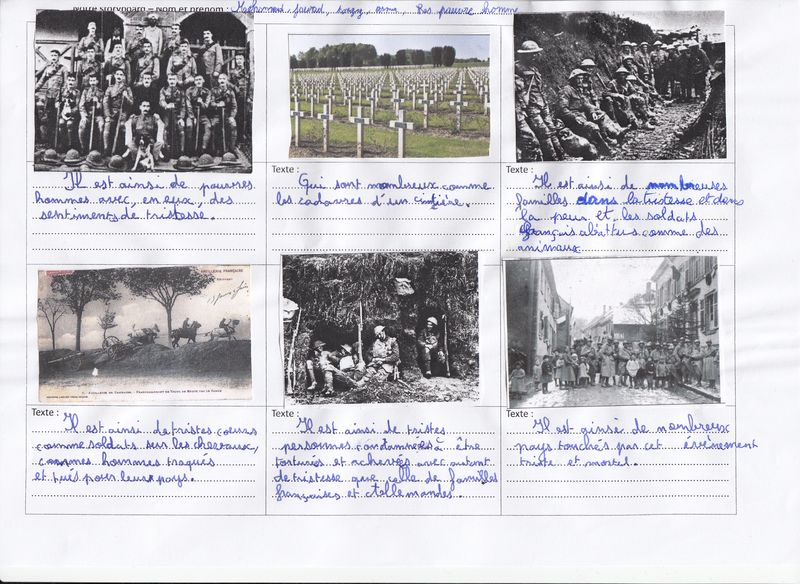 Notre storyboard – Nom et prénom :
Texte :
Il est ainsi de pauvres
hommes avec, en eux, des
sentiments de tristesse.
Qui sont nombreux comme
les cadavres d'un
Texte :
Il est ainsi de nombreuses
familles dans la tristesse et dans
la peur et, les soldats
français abattus comme des
animaux
ARTILLERIE FRANÇAISE
Texte :
Il est ainsi de tristes coeurs
comme soldats sur les chevaux,
comme hommes traqués
et tués pour leur pays.
Texte :
Il est ainsi de tristes
personnes condamnées à être
torturées et achevés avec autant
de tristesse que celle de familles
françaises et allemandes.
Texte :
Il est ainsi de nombreux
pays touchés par cet évènement
triste et mortel.